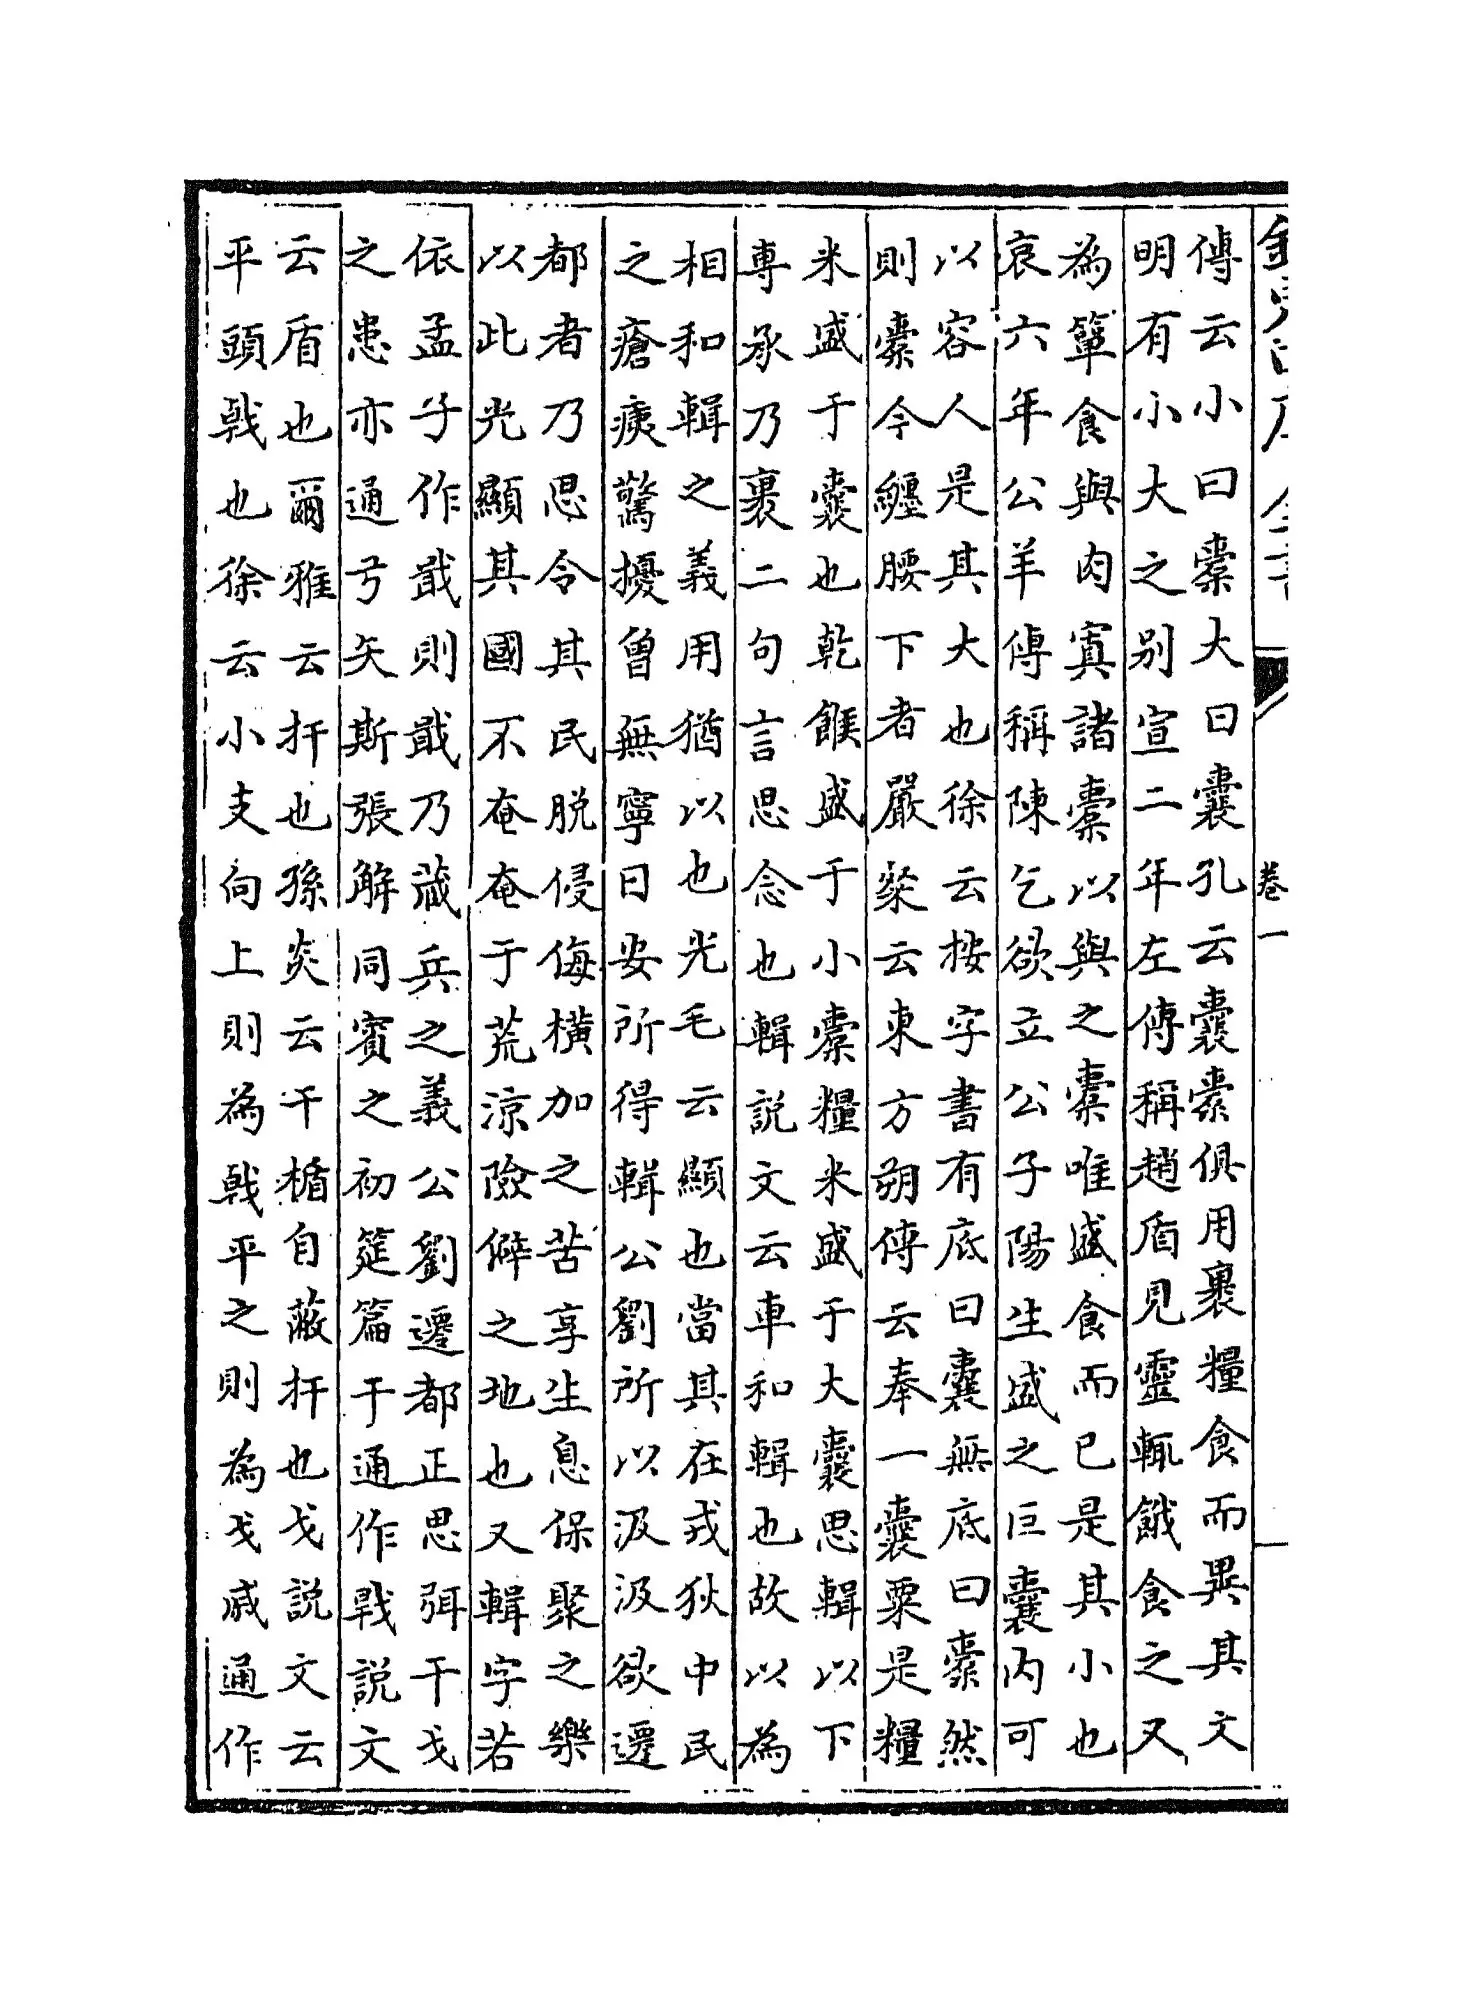 欽定四庫全書
卷一
傳云小曰橐大曰囊孔云囊橐俱用裹糧食而異其文
明有小大之别宣二年左傳稱趙盾見靈輒餓食之又
為簞食與肉寘諸橐以與之橐唯盛食而已是其小也
哀六年公羊傳稱陳乞欲立公子陽生盛之巨囊内可
以容人是其大也徐云按字書有底曰囊無底曰橐然
則橐今纏腰下者嚴粲云東方朔傳云奉一囊粟是糧
米盛于囊也乾餱盛于小橐糧米盛于大囊思輯以下
專承乃裹二句言思念也輯説文云車和輯也故以為
相和輯之義用猶以也光毛云顯也當其在戎狄中民
之瘡痍驚擾曾無寧日安所得輯公劉所以汲汲欲遷
都者乃思令其民脱侵侮橫加之苦享生息保聚之樂
以此光顯其國不奄奄于荒涼險僻之地也又輯字若
依孟子作戢則戢乃藏兵之義公劉遷都正思弭干戈
之患亦通弓矢斯張解同賓之初筵篇干通作説文
云盾也爾雅云扞也孫炎云干楯自蔽扞也戈説文云
平頭戟也徐云小支向上則為戟平之則為戈戚通作